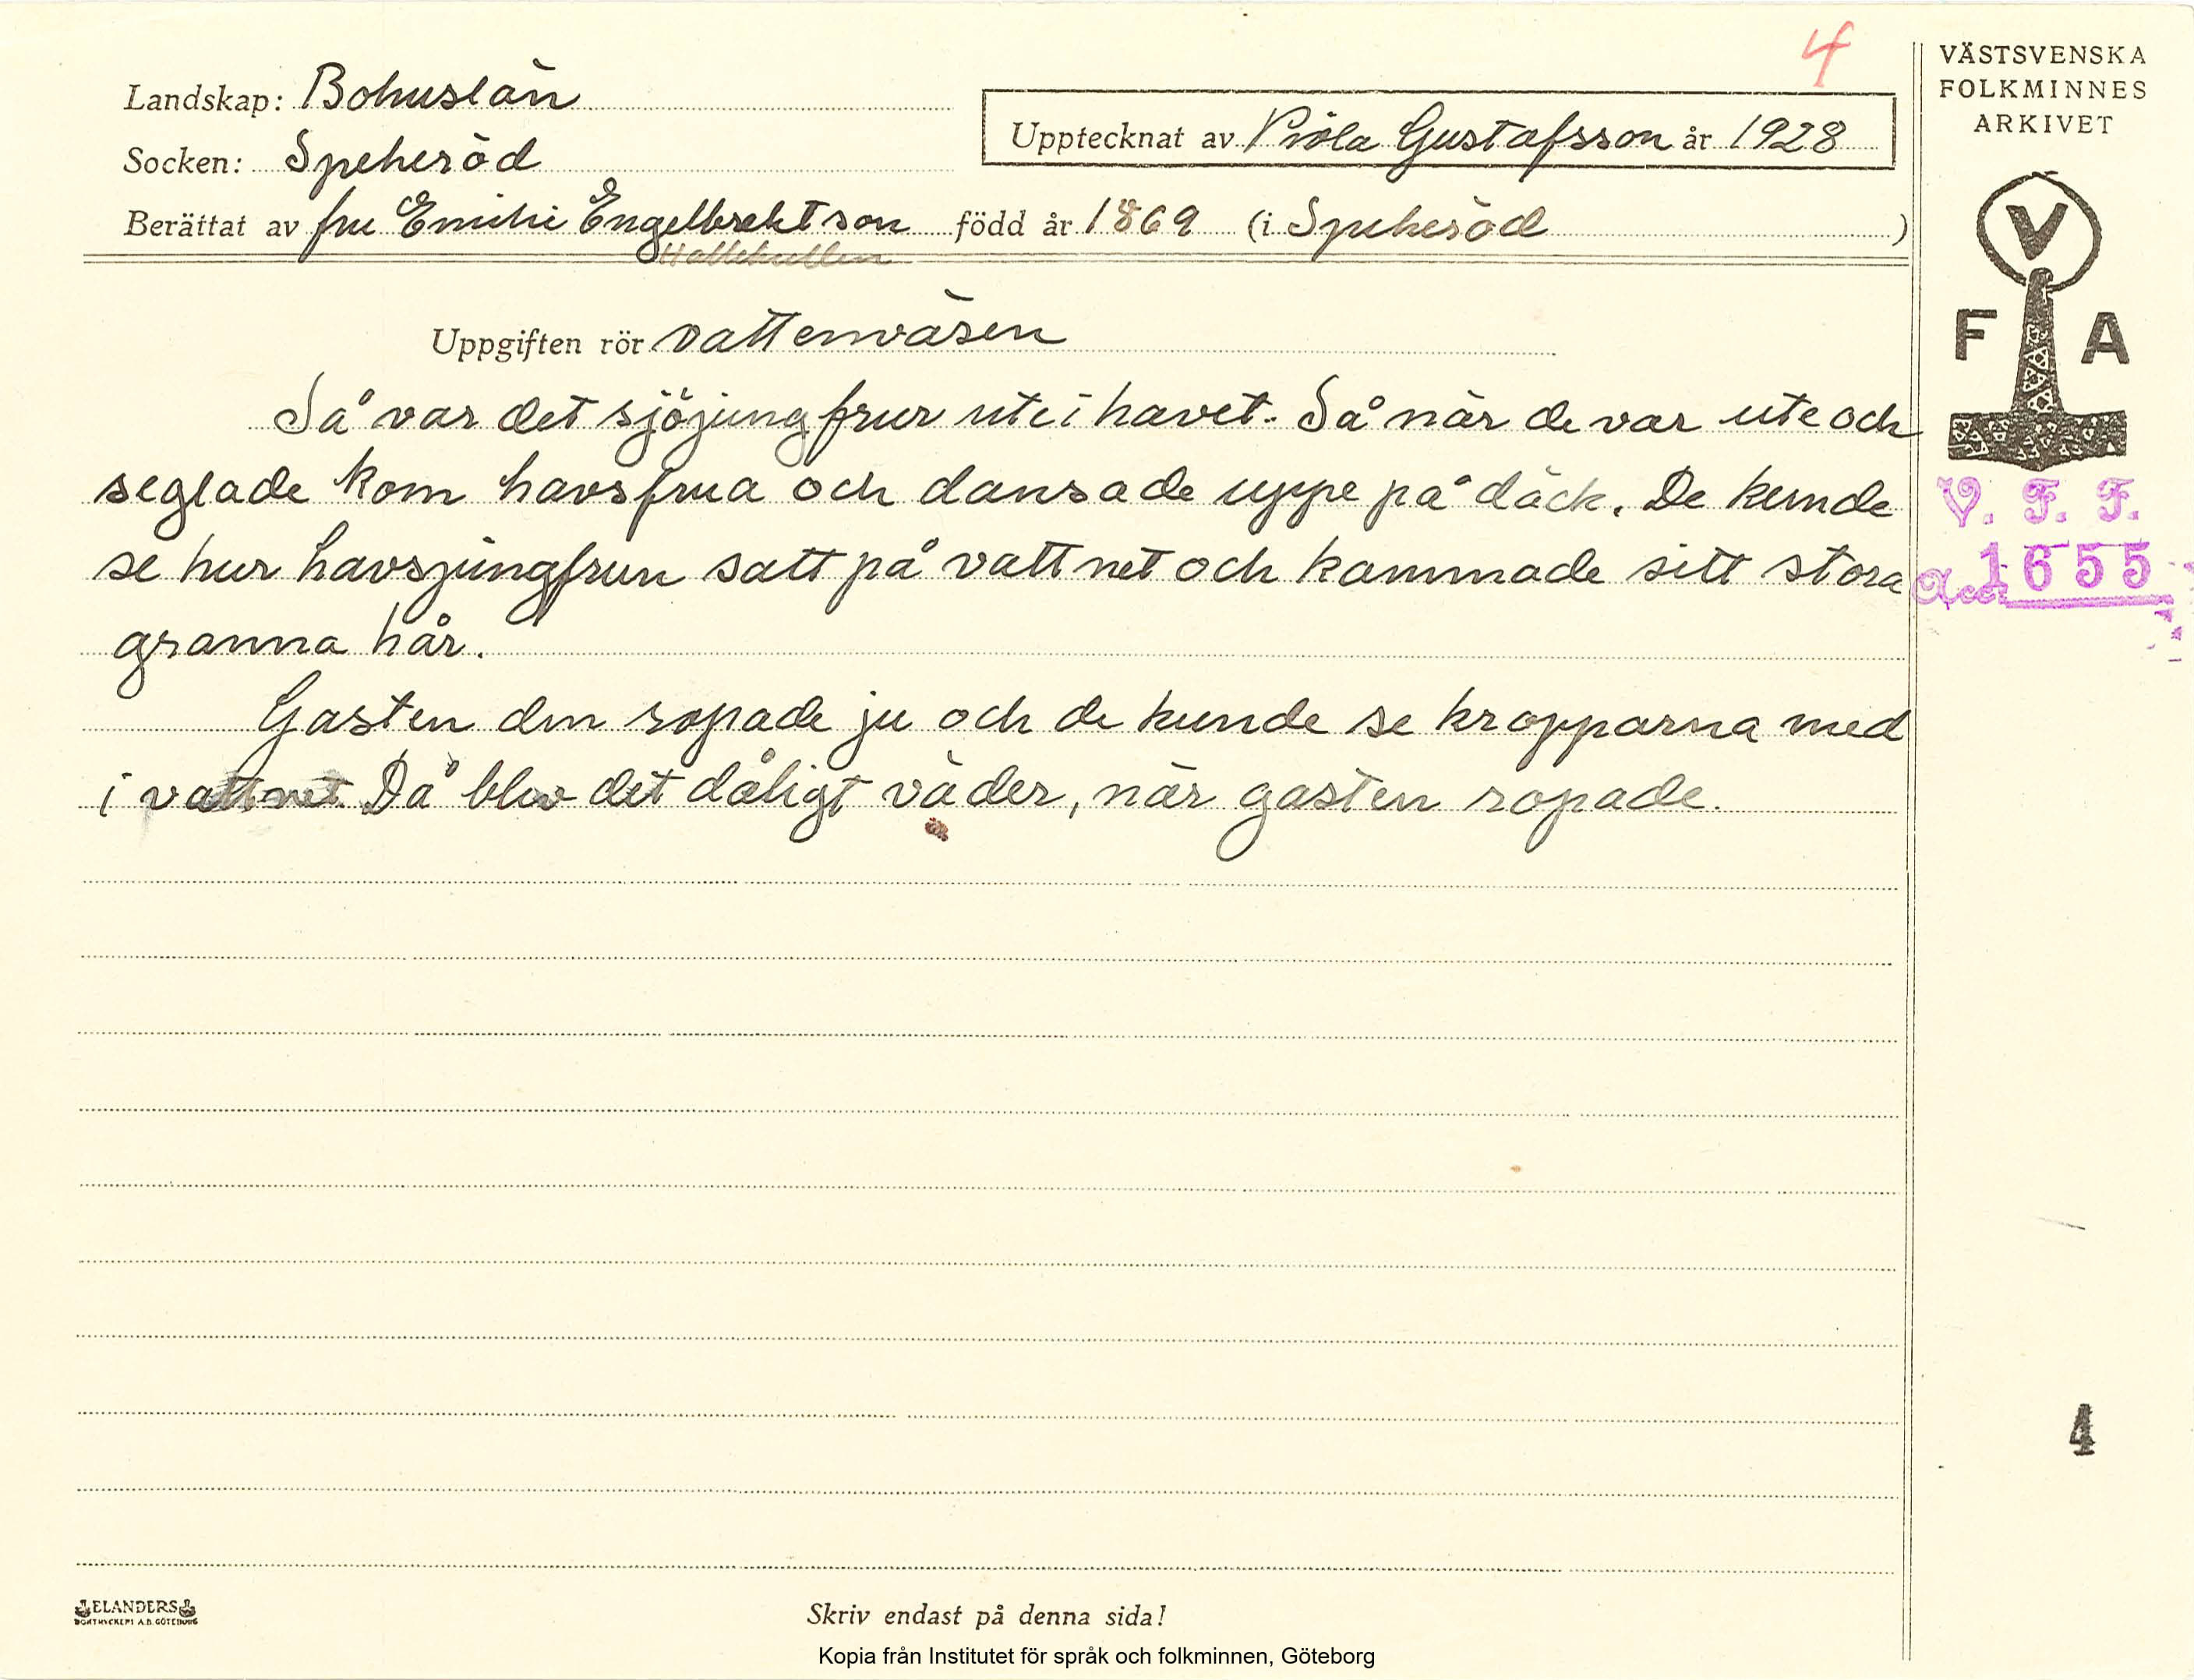 4
VÄSTSVENSKA
FOLKMINNES
ARKIVET
Landskap: Bohuslän
Upptecknat av Viola Gustafsson år 1928
Socken: Spekeröd
Berättat av fru Emili Engelbrektson född år 1869 (i Spekeröd )
Hallekullen
V
F A
Uppgiften rör vattenväsen
Så var det sjöjungfrur ute i havet. Så när de var ute och
seglade kom havsfrua och dansade uppe på däck. De kunde
se hur havsjungfrun satt på vattnet och kammade sitt stora
granna hår.
V. F. F.
Acc. 1655
Gasten den ropade ju och de kunde se kropparna med
i vattnet. Då blev det dåligt väder, när gasten ropade.
4
ELANDERS
BOKTRYCKERI A.B. GÖTEBORG
Skriv endast på denna sida!
Kopia från Institutet för språk och folkminnen, Göteborg